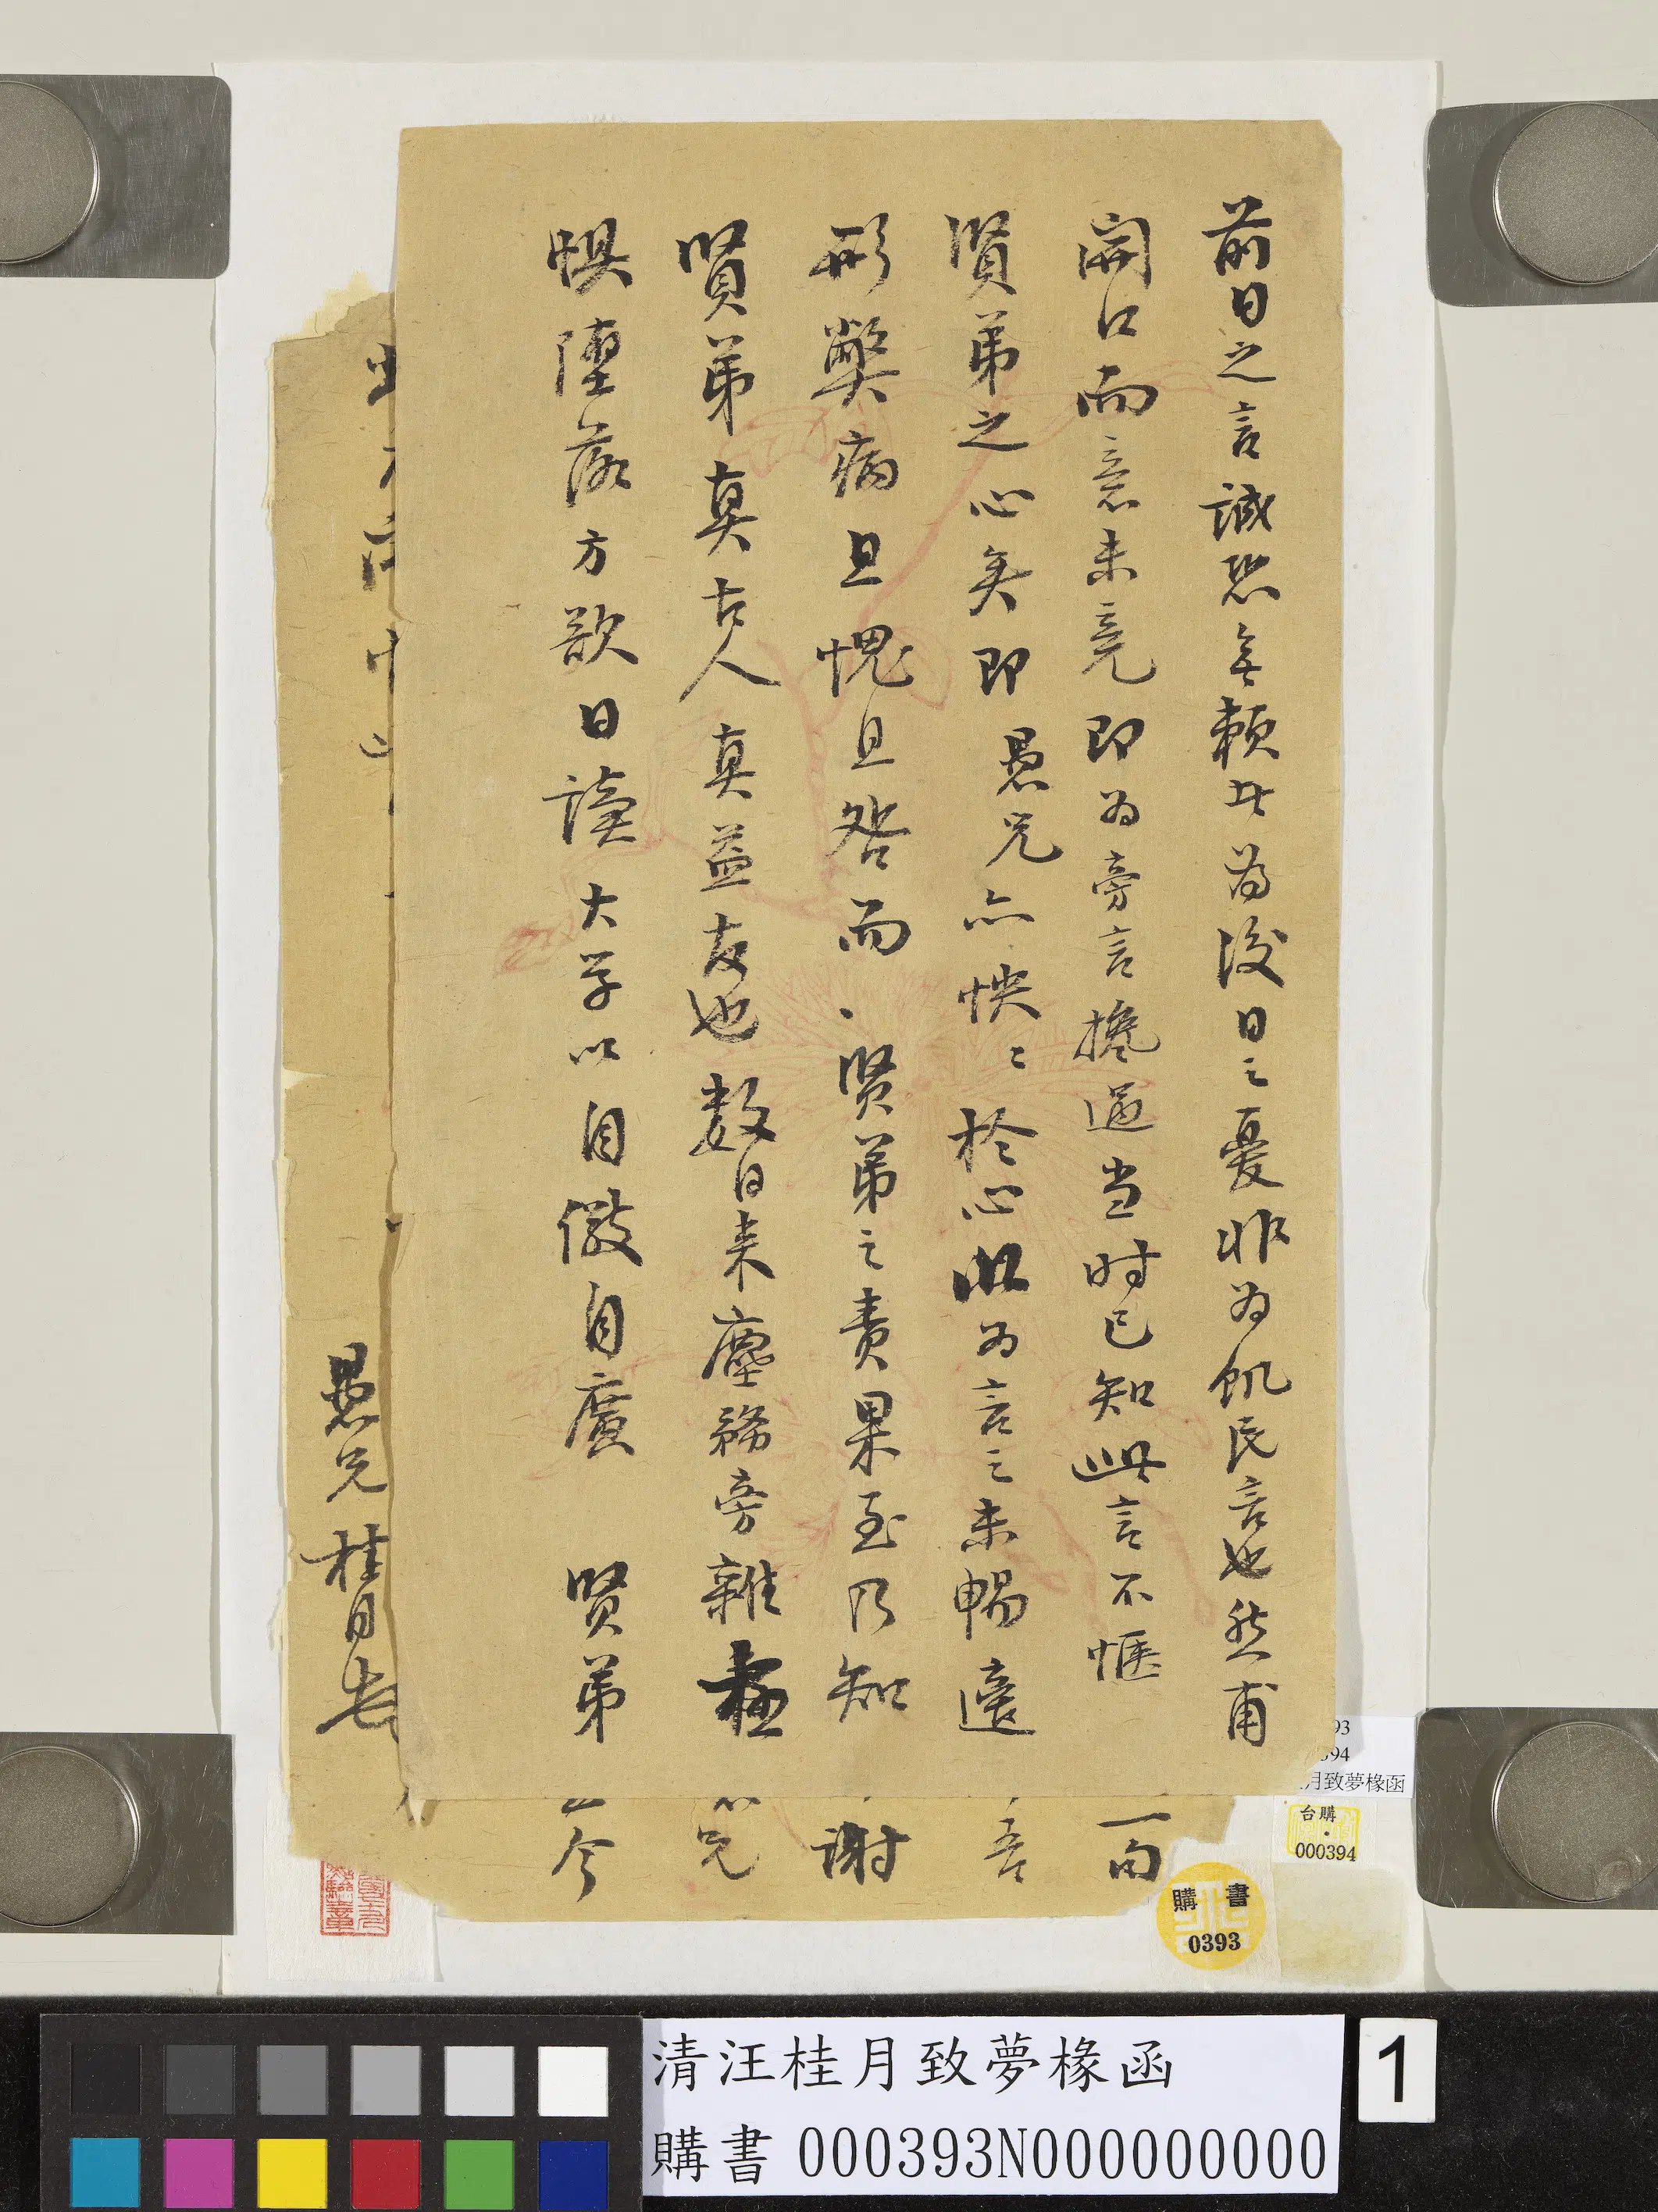 前日之言誠恐無賴此為後日之憂非為飢民言也然甫
開口而意未竟即为旁言攙過当时已知此言不愜
賢弟之心矣即愚兄亦怏〻於心以为言之未暢適
形獘病且愧且咎而賢弟之责果至乃知
賢弟真古人真益友也数日来塵務旁雜
惧墮落方欲日讀大学以自儆自廣 賢弟
一向
吾
謝
兄
今
愚兄桂月
93
394
月致夢椽函
台購
000394
購書
0393
清汪桂月致夢椽函
購書 000393N000000000
1